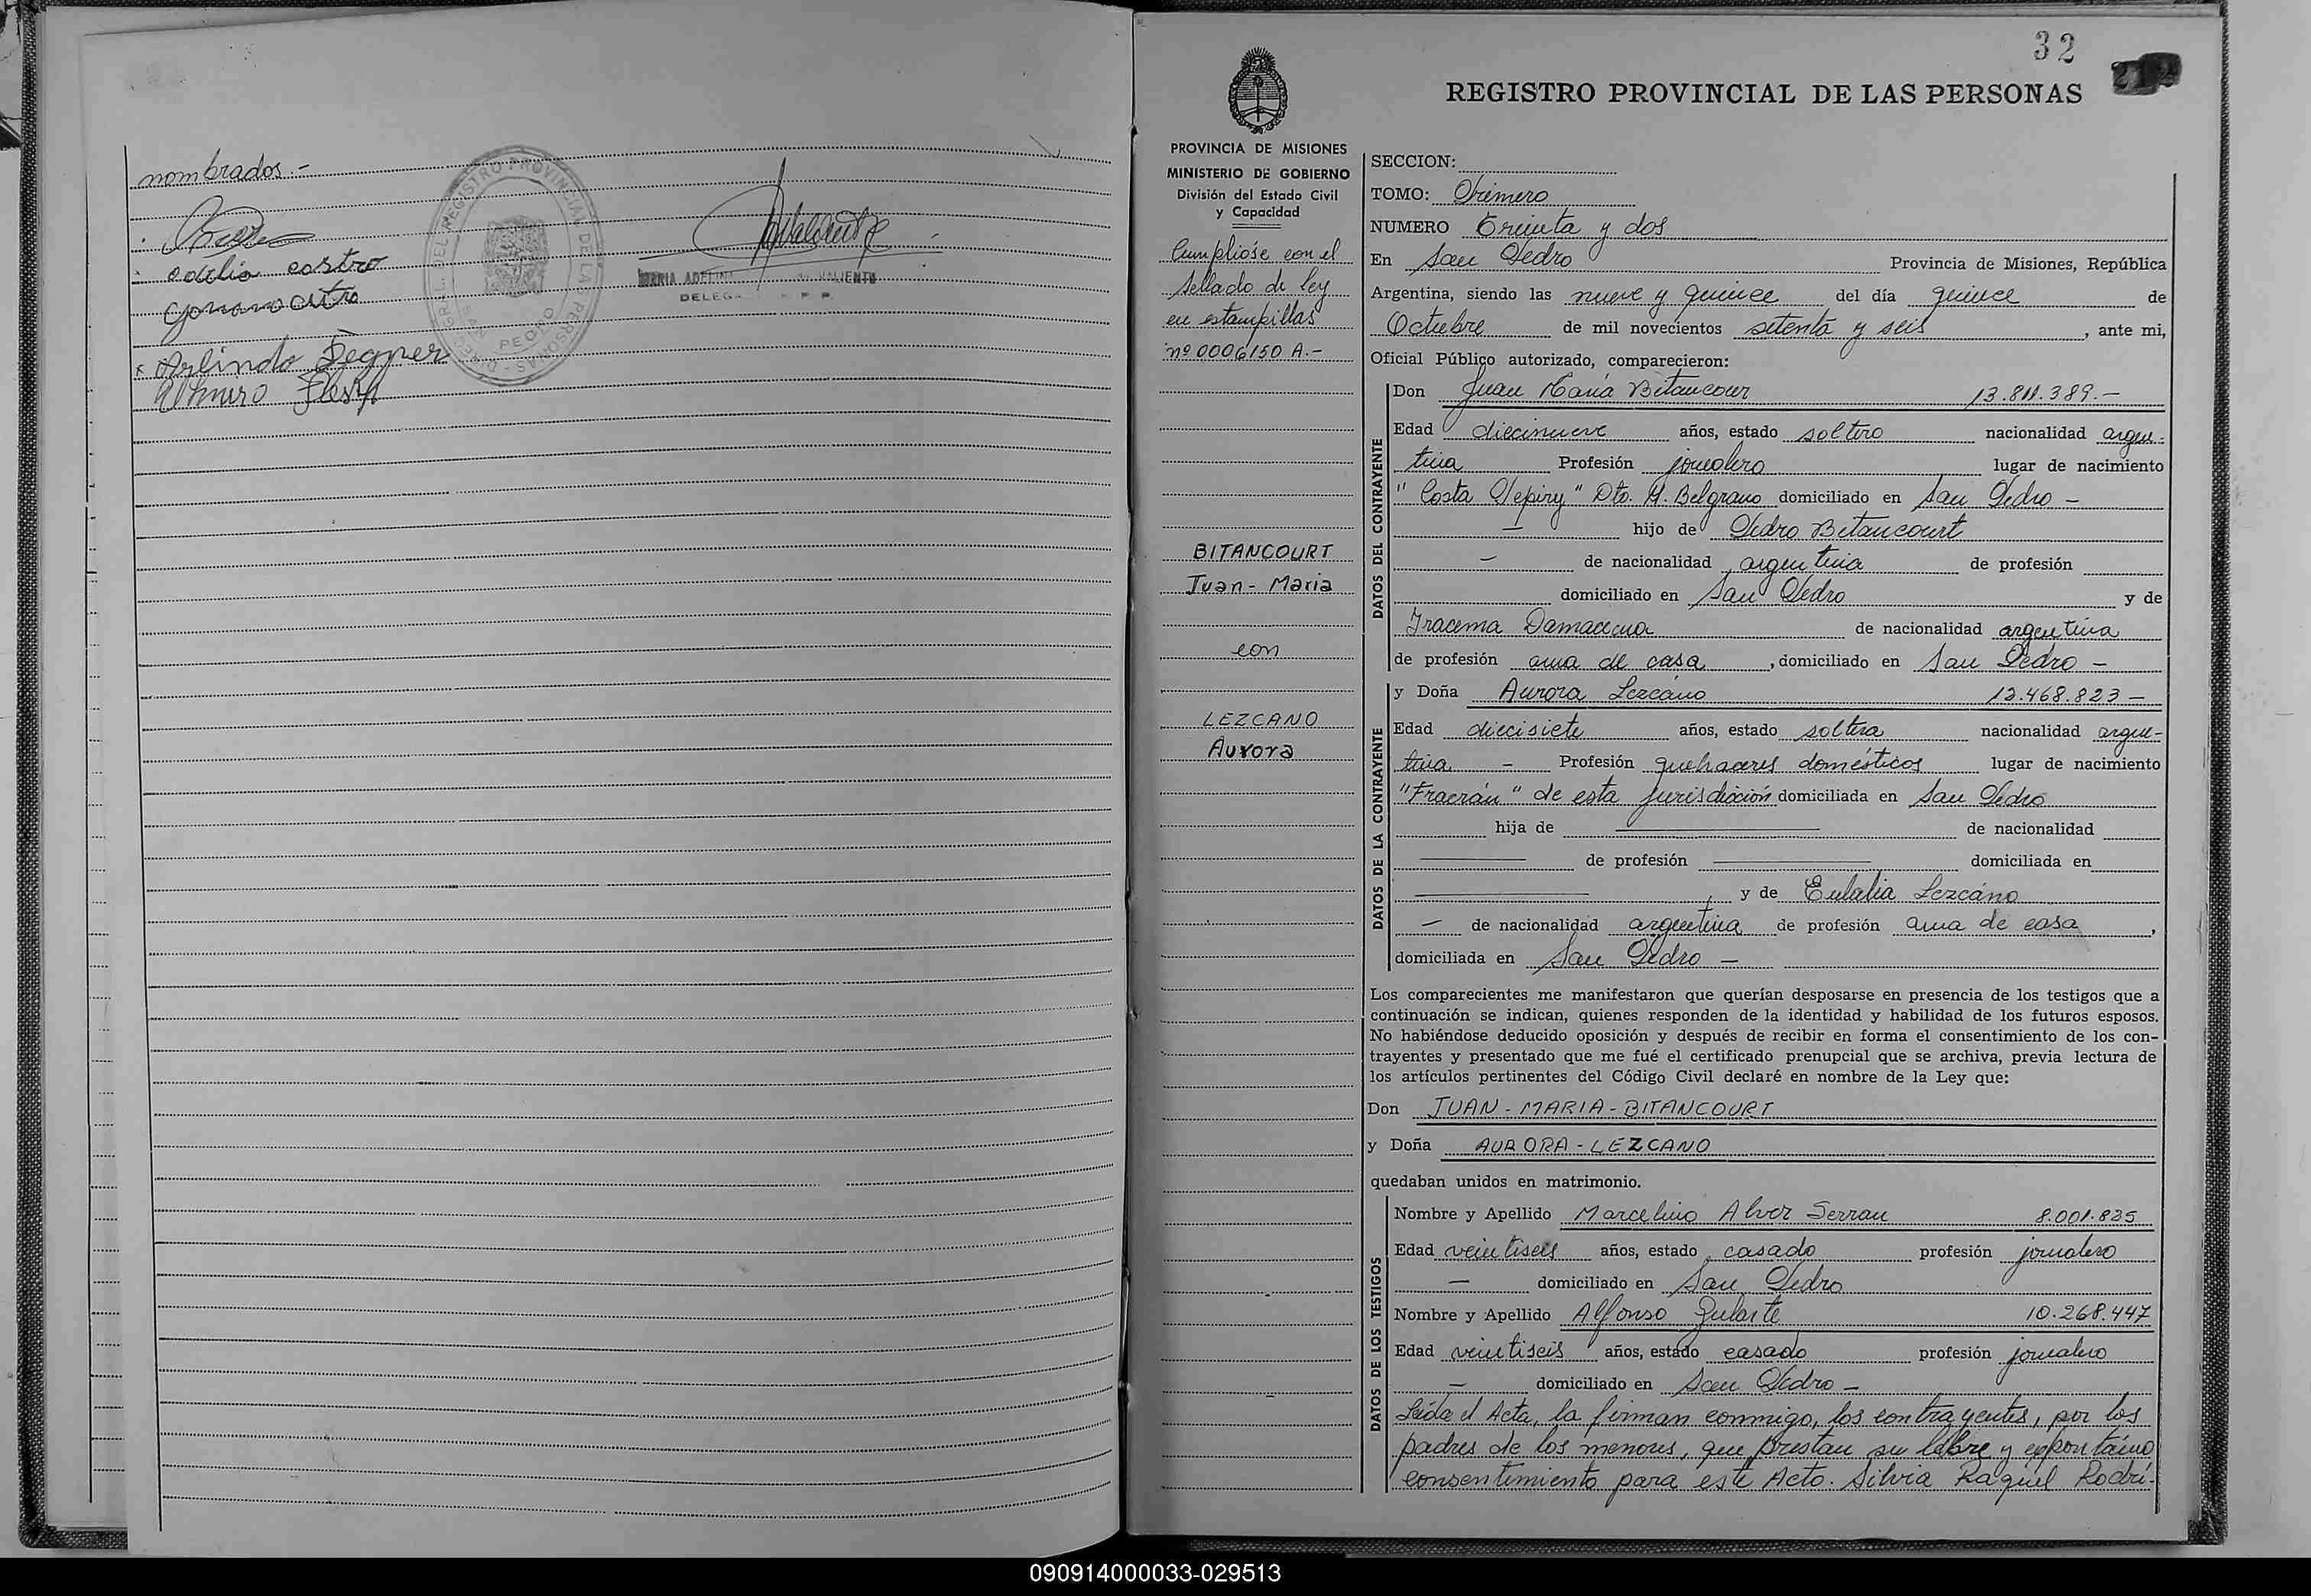 nombrados.-
odelia castro
Arlindo Segner
REGISTRO PROVINCIAL DE LAS PERSONAS
SAN PEDRO
MARIA ADELINA
32
REGISTRO PROVINCIAL DE LAS PERSONAS
PROVINCIA DE MISIONES
MINISTERIO DE GOBIERNO
División del Estado Civil
y Capacidad
Cumplióse con el
sellado de ley
en estampillas
nº 0006150 A.-
BITANCOURT
Juan - Maria
con
LEZCANO
Aurora
SECCION:
TOMO: Primero
NUMERO Treinta y dos
En San Pedro Provincia de Misiones, República
Argentina, siendo las nueve y quince del día quince de
Octubre de mil novecientos setenta y seis, ante mi,
Oficial Público autorizado, comparecieron:
DATOS DEL CONTRAYENTE
Don Juan María Bitancour 13.811.389.-
Edad diecinueve años, estado soltero nacionalidad argen-
tina Profesión jornalero lugar de nacimiento
"Costa Pepiry" Dto. M. Belgrano domiciliado en San Pedro -
- hijo de Pedro Bitancourt
- de nacionalidad argentina de profesión
domiciliado en San Pedro y de
Iracema Damacena de nacionalidad argentina
de profesión ama de casa, domiciliado en San Pedro -
DATOS DE LA CONTRAYENTE
y Doña Aurora Lezcano 12.468.823 -
Edad diecisiete años, estado soltera nacionalidad argen-
tina - Profesión quehaceres domésticos lugar de nacimiento
"Fracrán" de esta jurisdicción domiciliada en San Pedro
hija de de nacionalidad
de profesión domiciliada en
y de Eulalia Lezcano
- de nacionalidad argentina de profesión ama de casa,
domiciliada en San Pedro -
Los comparecientes me manifestaron que querían desposarse en presencia de los testigos que a
continuación se indican, quienes responden de la identidad y habilidad de los futuros esposos.
No habiéndose deducido oposición y después de recibir en forma el consentimiento de los con-
trayentes y presentado que me fué el certificado prenupcial que se archiva, previa lectura de
los artículos pertinentes del Código Civil declaré en nombre de la Ley que:
Don JUAN - MARIA - BITANCOURT
y Doña AURORA - LEZCANO
quedaban unidos en matrimonio.
DATOS DE LOS TESTIGOS
Nombre y Apellido Marcelino Alvez Serran 8.001.825
Edad veintiseis años, estado casado profesión jornalero
- domiciliado en San Pedro
Nombre y Apellido Alfonso Zularte 10.268.447
Edad veintiseis años, estado casado profesión jornalero
- domiciliado en San Pedro -
Leída el Acta, la firman conmigo, los contrayentes, por los
padres de los menores, que prestan su libre y expontáneo
consentimiento para este Acto. Silvia Raquel Rodrí-
090914000033-029513